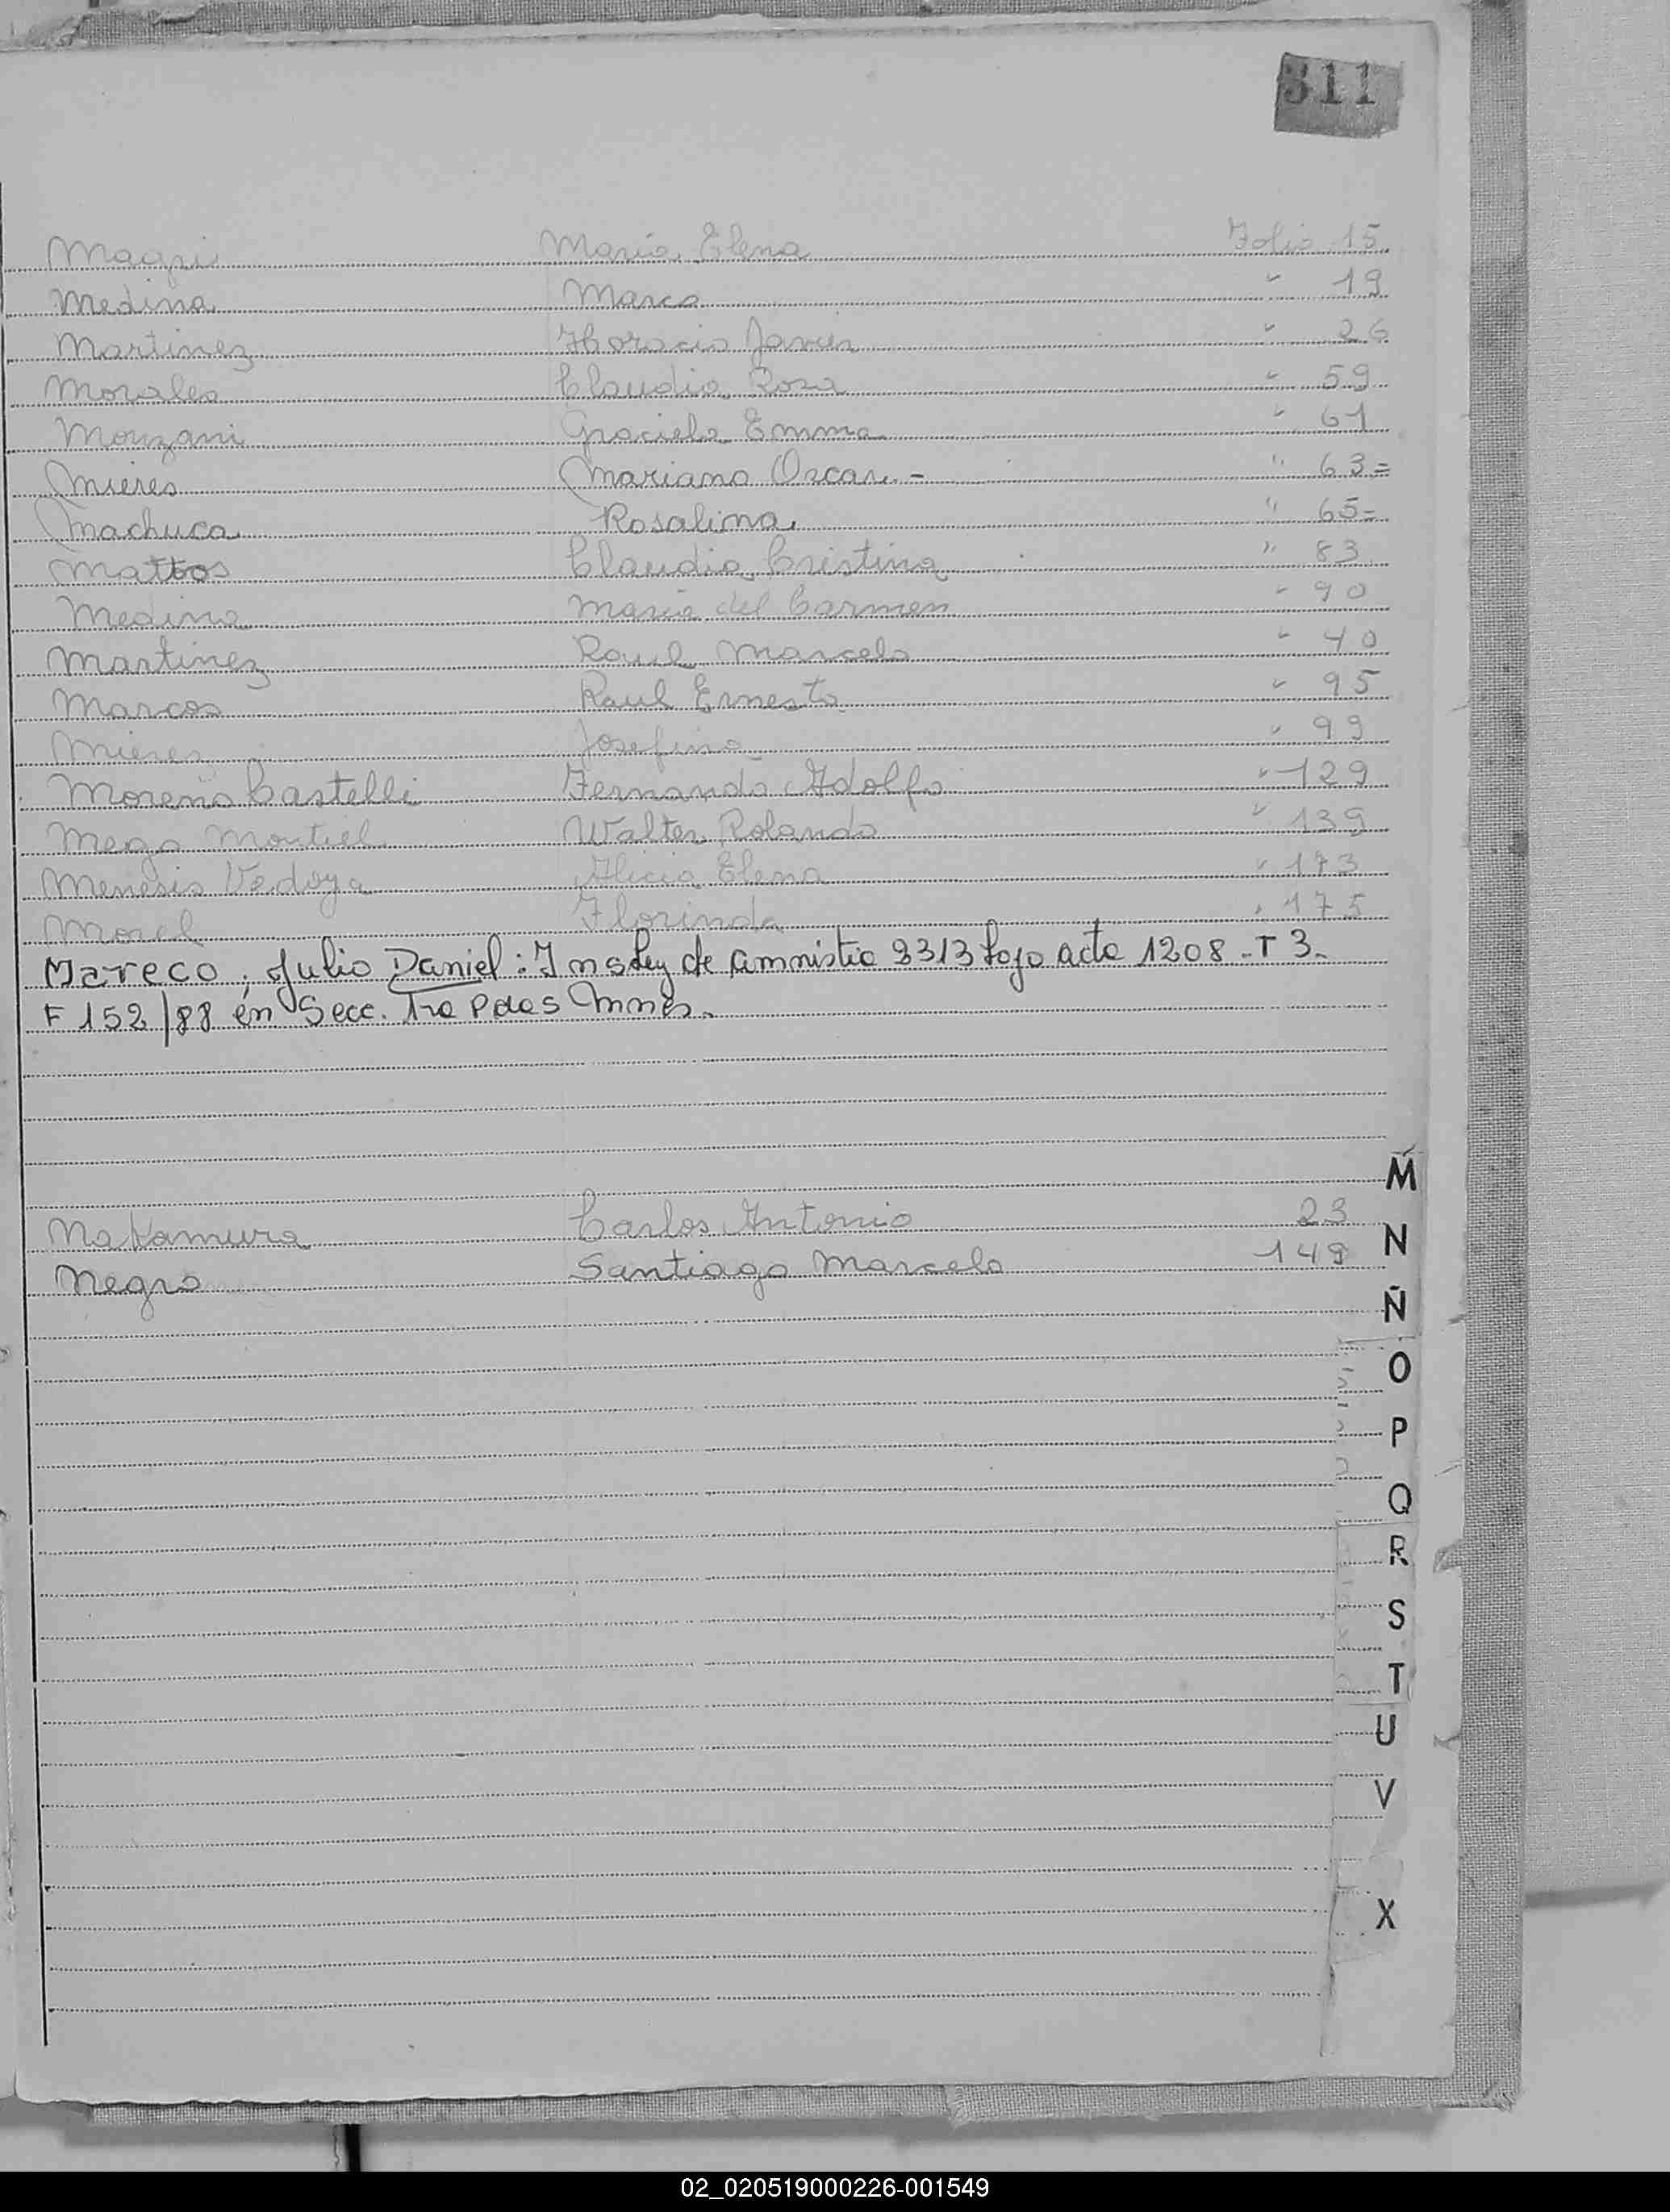 311
Maqui María Elena Folio 15
Medina Marco " 19
Martinez Horacio Javier " 26
Morales Claudia Rosa " 59
Monzani Graciela Emma " 61
Mieres Mariano Oscar.- " 63=
Machuca Rosalina. " 65=
Mattos Claudia Cristina " 83
Medina María del Carmen " 90
Martinez Raul Marcelo " 40
Marcos Raul Ernesto " 95
Mieres Josefina " 99
Moreno Castelli Fernando Adolfo " 129
Mego Montiel Walter Rolando " 139
Menesis Vedoya Alicia Elena " 173
Morel Florinda " 175
Mareco, Julio Daniel: Ins Ley de amnistia 23313 acta 1208 - T 3.
F 152/88 en Secc. Pdas Mnes.
M
Nakamura Carlos Antonio 23
N
Negro Santiago Marcelo 149
Ñ
O
P
Q
R
S
T
U
V
X
02_020519000226-001549